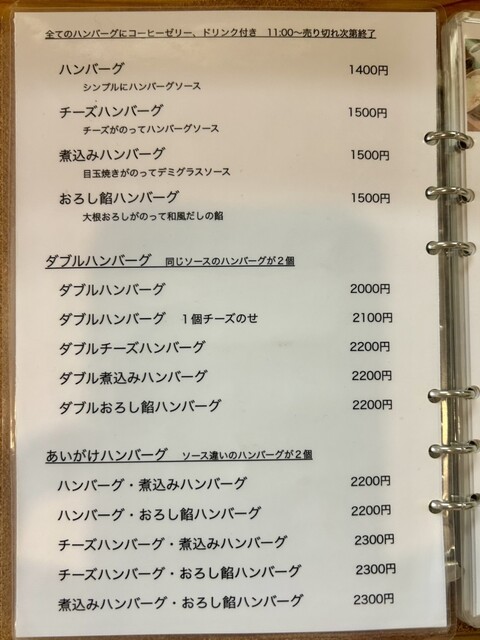 全てのハンバーグにコーヒーゼリー、ドリンク付き 11:00〜売り切れ次第終了
ハンバーグ 1400円
シンプルにハンバーグソース
チーズハンバーグ 1500円
チーズがのってハンバーグソース
煮込みハンバーグ 1500円
目玉焼きがのってデミグラスソース
おろし餡ハンバーグ 1500円
大根おろしがのって和風だしの餡
ダブルハンバーグ 同じソースのハンバーグが２個
ダブルハンバーグ 2000円
ダブルハンバーグ １個チーズのせ 2100円
ダブルチーズハンバーグ 2200円
ダブル煮込みハンバーグ 2200円
ダブルおろし餡ハンバーグ 2200円
あいがけハンバーグ ソース違いのハンバーグが２個
ハンバーグ・煮込みハンバーグ 2200円
ハンバーグ・おろし餡ハンバーグ 2200円
チーズハンバーグ・煮込みハンバーグ 2300円
チーズハンバーグ・おろし餡ハンバーグ 2300円
煮込みハンバーグ・おろし餡ハンバーグ 2300円